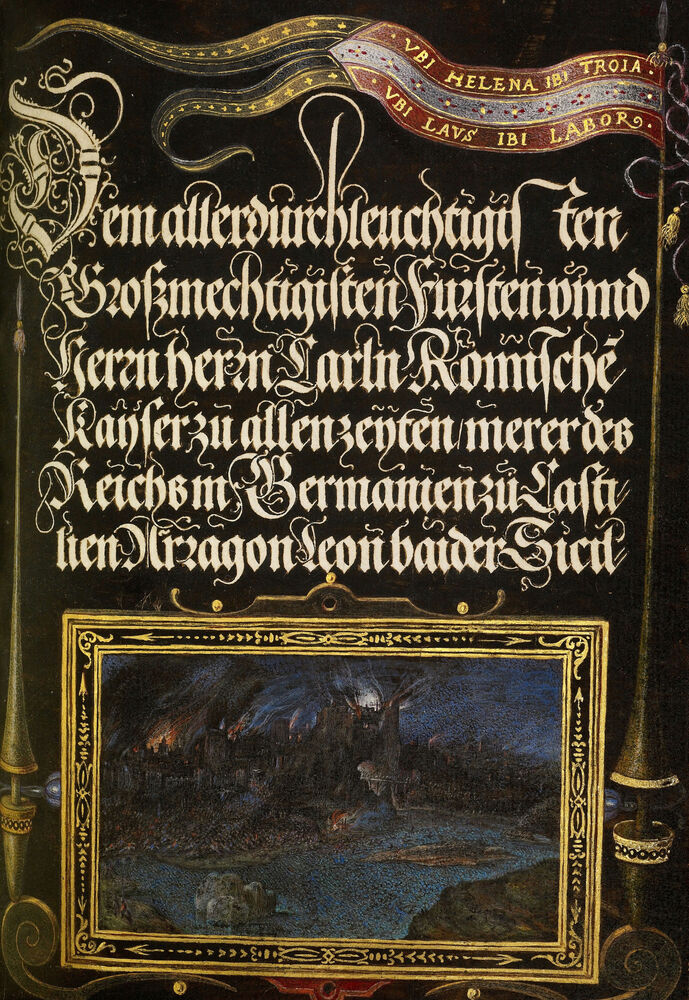 VBI HELENA IBI TROIA.
VBI LAVS IBI LABOR
Dem allerdurchleuchtigisten
Großmechtigisten Fursten vnnd
Herrn herrn Carln Römischē
Kayser zu allen zeyten/merer des
Reichs in Germanien zu Casti/
lien Arragon Leon baider Sicil/